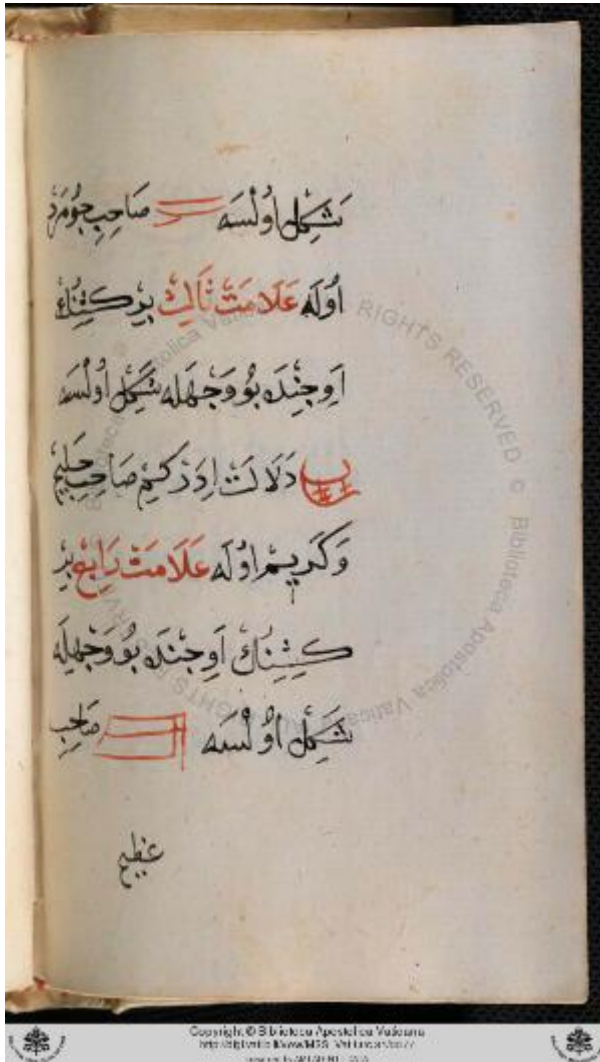 شَكِلْ اوُلْسَه صَاحِبِ جُومَرْدْ
اوُلَه عَلَامَتْ ثَالِثْ بِرْ كَشِنُكْ
اَوِجِنْدَه بُو وَجْهِلَه شَكِلْ اُولْسَه
دَلَالَتْ اِدَرْ كِمْ صَاحِبِ حَلِيمْ
وَكَرِيمْ اوُلَه عَلَامَتْ رَابِعْ بِرْ
كَشِنُكْ اَوِجِنْدَه بُو وَجْهِلَه
شَكِلْ اوُلْسَه صَاحِبِ
عَظِيمْ
RIGHTS RESERVED © Biblioteca Apostolica Vaticana
Copyright © Biblioteca Apostolica Vaticana